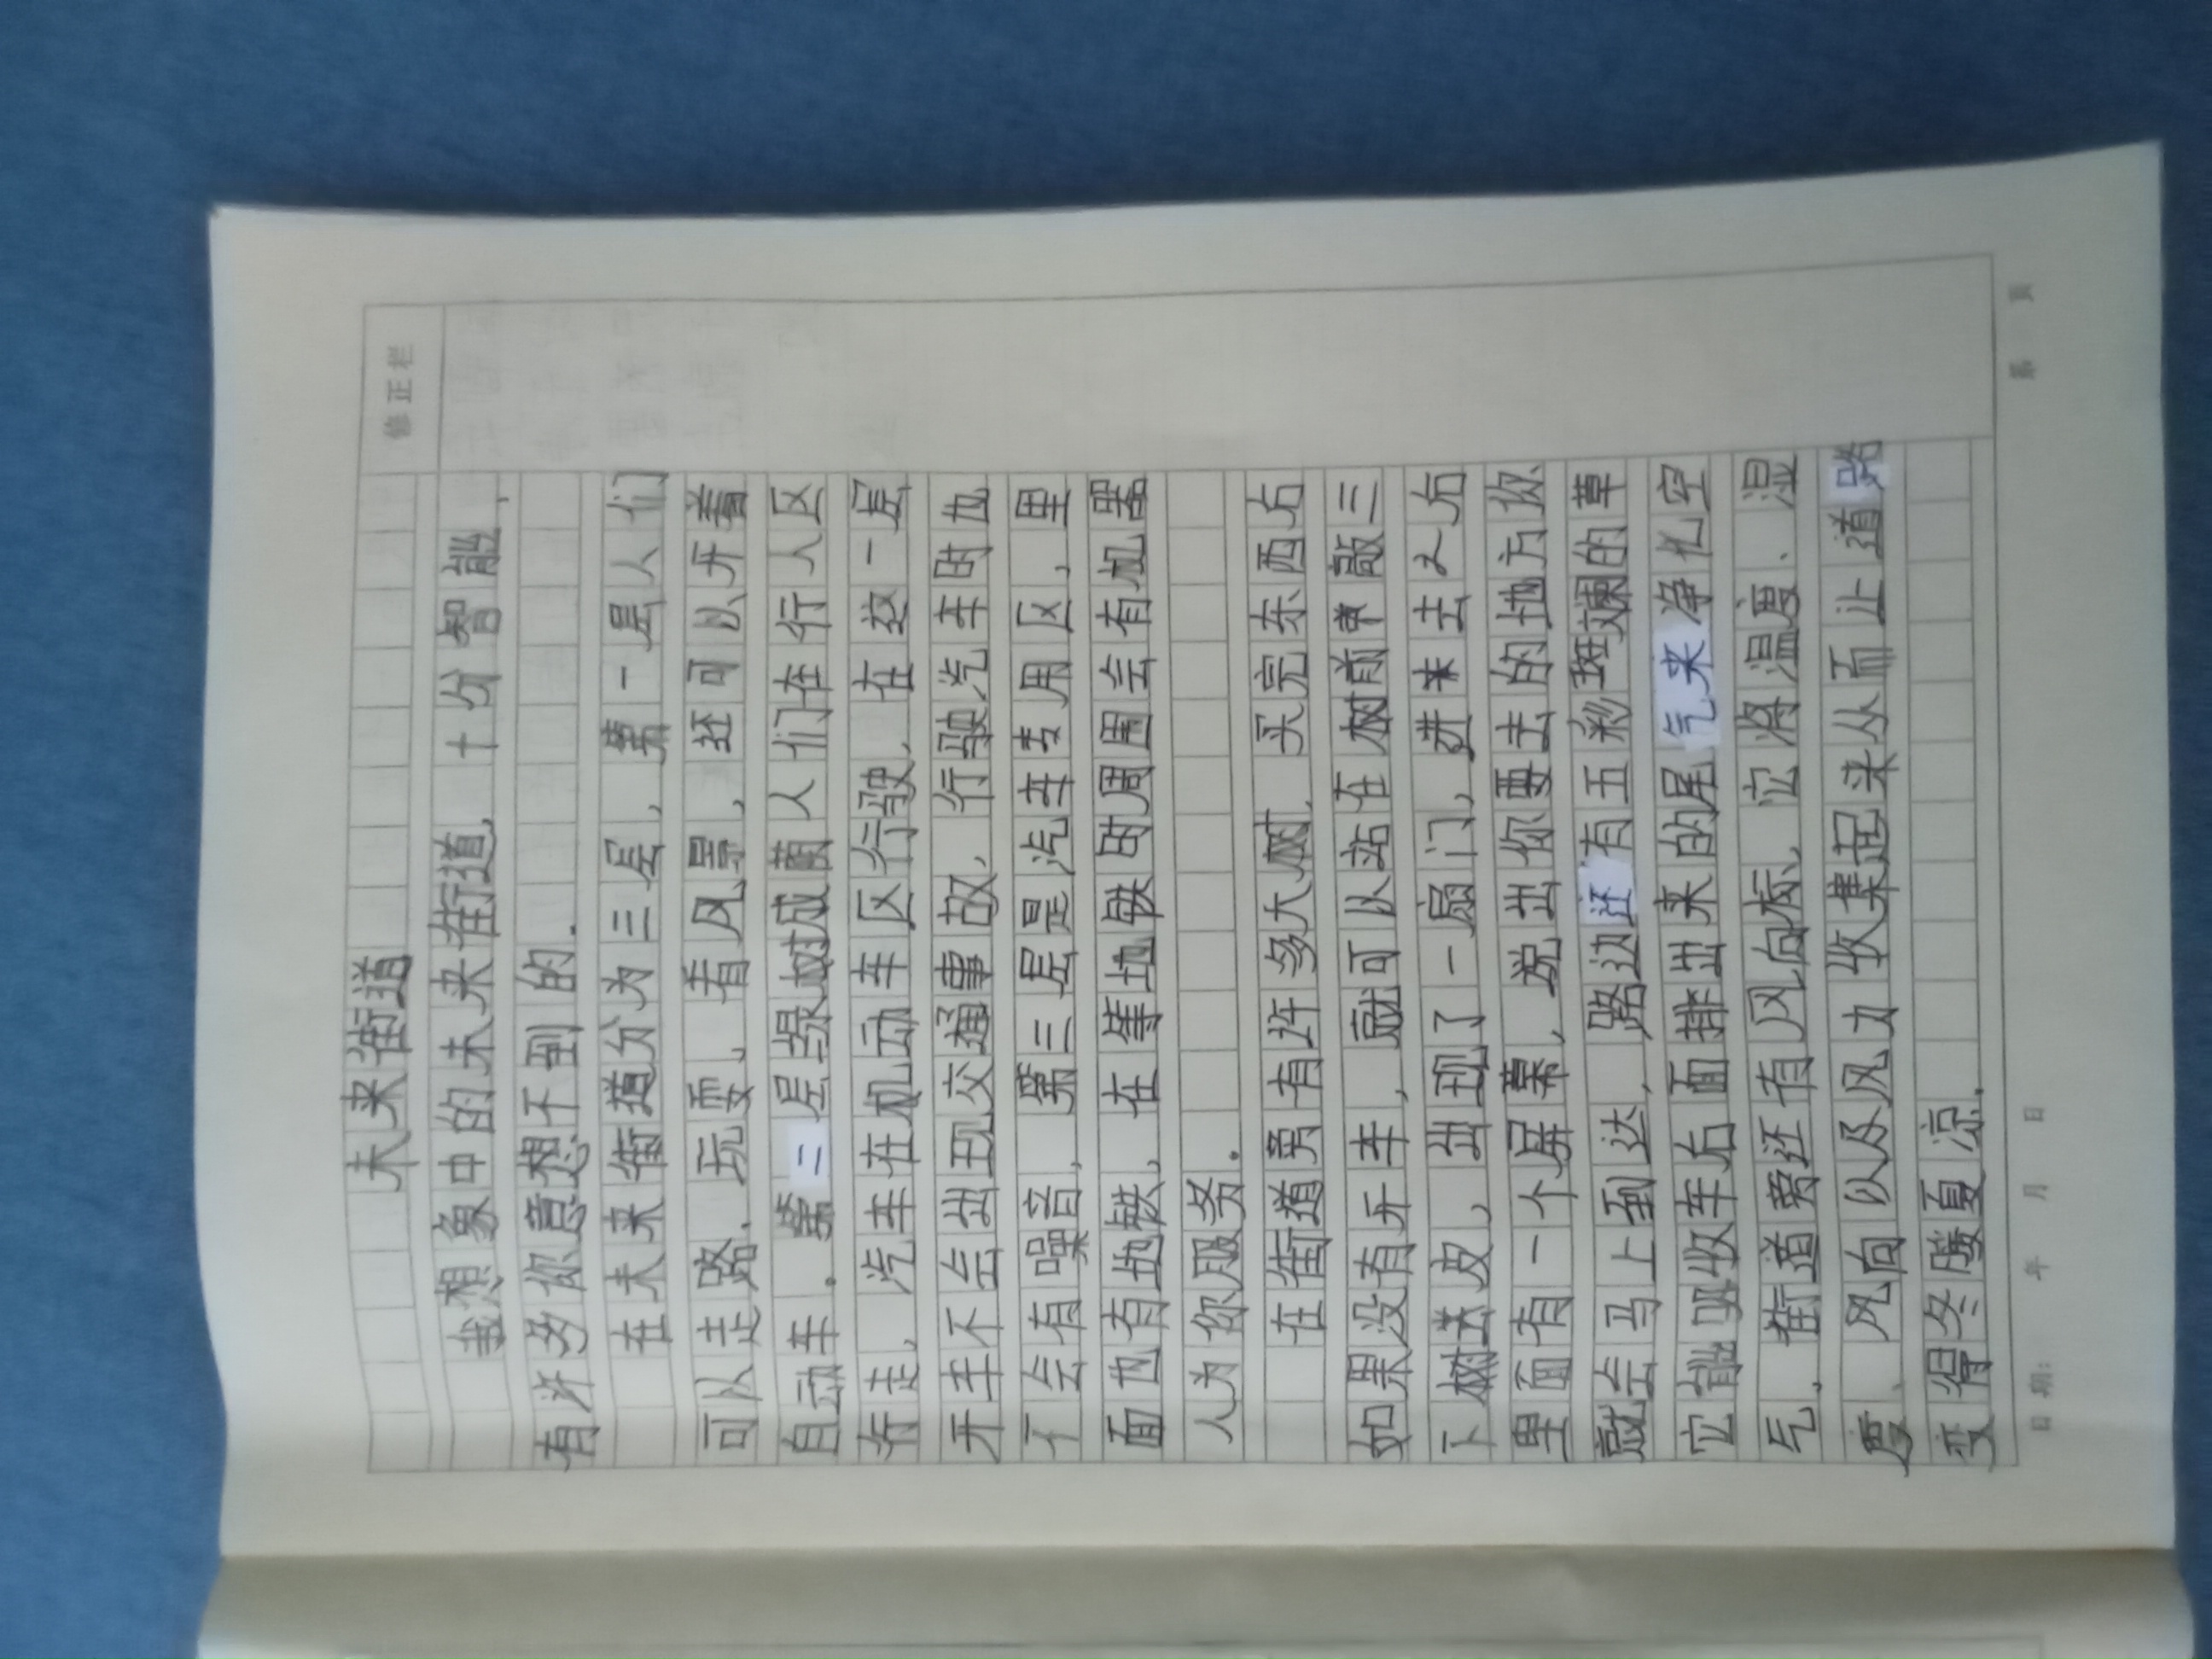 修正栏
未来街道
我想象中的未来街道，十分智能，
有许多你意想不到的。
在未来街道分为三层，第一层人们
可以走路、玩耍、看风景，还可以开着
自动车。第二层绿树成荫人们在行人区
行走，汽车在机动车区行驶，在这一层
开车不会出现交通事故，行驶汽车时也
不会有噪音，第三层是汽车专用区，里
面也有地铁，在等地铁时周围会有机器
人为你服务。
在街道旁有许多大树，买完东西后
如果没有开车，就可以站在树前敲三
下树去皮，出现了一扇门，进来去之后
里面有一个屏幕，说出你要去的地方你
就会马上到达，路边还有五彩斑斓的草
它能吸收车后面排出来的尾气来净化空
气，街道旁还有风向标，它将温度、湿
度、风向以及风力收集起来从而让道路
变得冬暖夏凉。
日期： 年 月 日
第 页